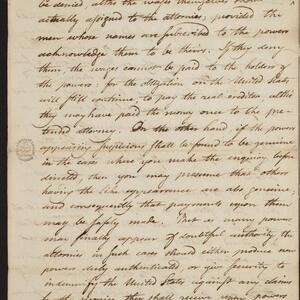 be denied, altho' the wages themselves should
actually assigned to the attornies, provided the
men whose names are subscribed to the powers
acknowledge them to be theirs. If they deny
them, the wages cannot be paid to the holders of
the powers: for the obligation on the United States
will still continue, to pay the real creditor altho'
they may have paid the money once to the pre-
tended attorney. On the other hand if the powers
appearing suspicious shall be found to be genuine
in the cases where you make the enquiry before
directed then you may presume that others
having the like appearance are also genuine,
and consequently that payments upon them
may be safely made. But as many powers
may finally appear of doubtful authority the
attornies in such cases should either produce new
powers duly authenticated or give security to
indemnify the United States against any claims
for the monies they shall receive upon powers